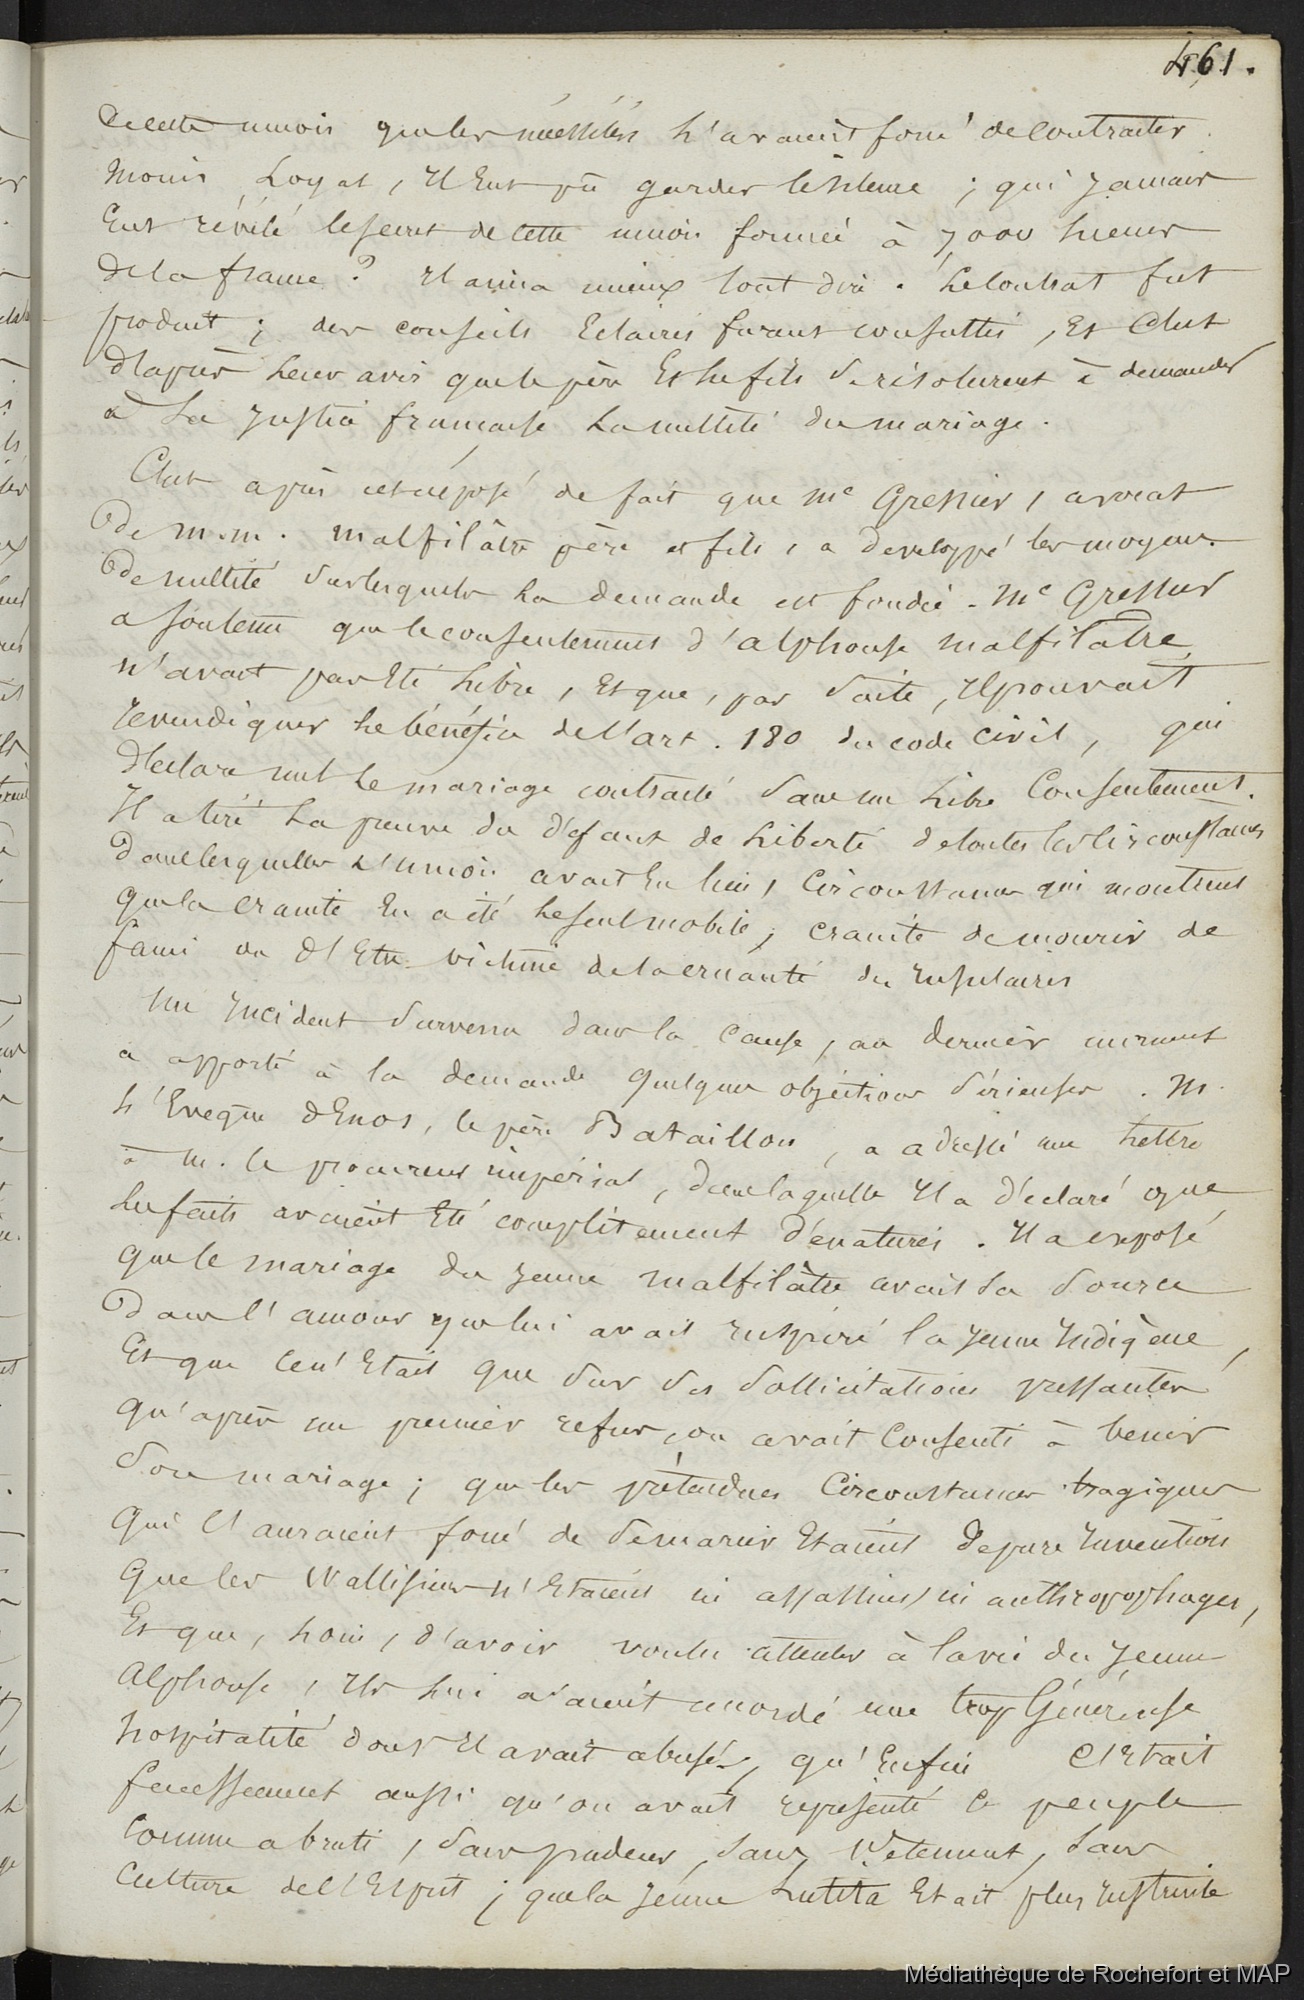 461.
de cette union que les nécessités l'avaient forcé de contracter.
Moins Loyal, Il Eut pû garder le silence ; qui Jamais
Eut révélé le secret de cette union formée à 7000 lieues
de la france ? Il aima mieux tout dire . Le contrat fut
produit ; des conseils Eclairés furent consultés, Et C'est
d'après Leur avis que le père Et le fils se résolurent à demander
à La Justice française La nullité du mariage .
C'est après cet exposé de fait que Me Gressier, avocat
de m.m. malfilâtre père et fils, a développé les moyens
de nullité sur lesquels La demande est fondée . Me Gressier
a soutenu que le consentement d'alphonse malfilatre
n'avait pas Eté Libre, Et que, par suite, Il pouvait
revendiquer Le bénéfice de l'art. 180 du code civil, qui
déclare nul Le mariage contracté sans un Libre Consentement.
Il a tiré La preuve du défaut de Liberté de toutes les Circonstances
dans lesquelles L'union avait Eu lieu, Circonstances qui montrent
que la crainte En a été Le seul mobile ; crainte de mourir de
faim ou d'Etre victime de la cruauté des Insulaires
Un Incident survenu dans la Cause, au dernier moment
a apporté à la demande quelques objections sérieuses . M.
L'Evêque d'Enos, le père Bataillon, a adressé une Lettre
à m. le procureur impérial, dans laquelle Il a déclaré que
Les faits avaient Eté complètement dénaturés . Il a exposé
que le mariage du Jeune malfilâtre avait sa source
dans l'amour que lui avait Inspiré la Jeune Indigène,
Et que Ce n'Etait que sur ses sollicitations pressantes
qu'après un premier refus, on avait Consenti à benir
son mariage ; que les prétendues Circonstances tragiques
qui l'auraient forcé de se marier Etaient de pure Invention
que les Wallisiens n'Etaient ni assassins, ni anthropophages,
Et que, Loin, d'avoir voulu attenter à la vie du Jeune
alphonse, Ils Lui avaient accordé une trop Généreuse
hospitalité dont Il avait abusé, qu'Enfin C'Etait
faussement aussi qu'on avait représenté ce peuple
Comme abruti, sans pudeur, sans Vêtement, sans
Culture de l'Esprit ; que la Jeune Lutita Etait plus Instruite
Médiathèque de Rochefort et MAP